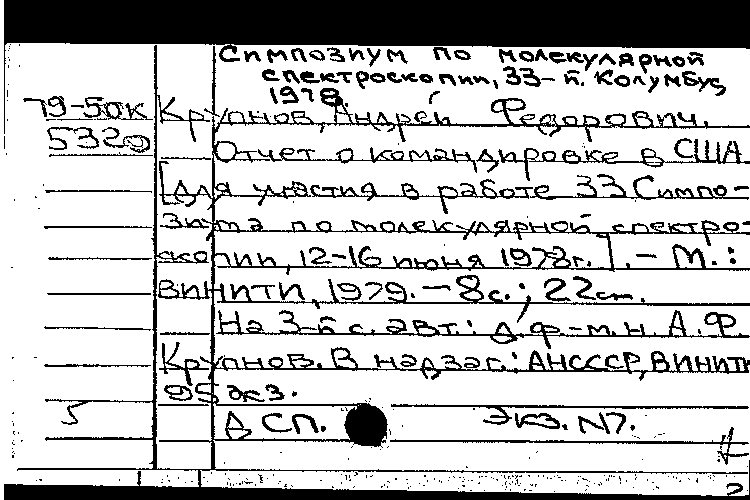 Симпозиум по молекулярной
спектроскопии, 33-й. Колумбус,
1978.
79-50к Крупнов, Андрей Федорович.
5320 Отчет о командировке в США
[для участия в работе 33 Симпо-
зиума по молекулярной спектро-
скопии, 12-16 июня 1978г.]. - М.:
ВИНИТИ, 1979. - 8с.; 22см.
На 3-й с. авт.: д.ф.-м.н. А.Ф.
Крупнов. В надзаг.: АНСССР, ВИНИТИ
95 экз.
5 ДСП. Экз. N7.